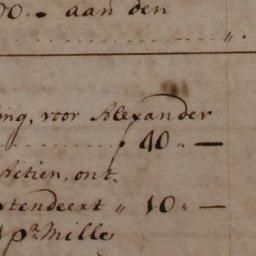 00.- aan den
".
ing, voor Alexander
ƒ 40 " —
Actien, ont.
xtendeert " 10 " —
1 pr. Mille